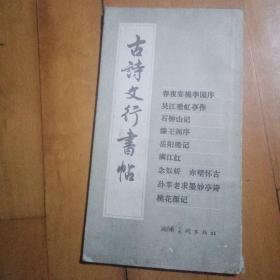 古詩文行書帖
春夜宴桃李园序
吴江垂虹亭作
石钟山记
滕王阁序
岳阳楼记
满江红
念奴娇　赤壁怀古
孙莘老求墨妙亭诗
桃花源记
美术出版社